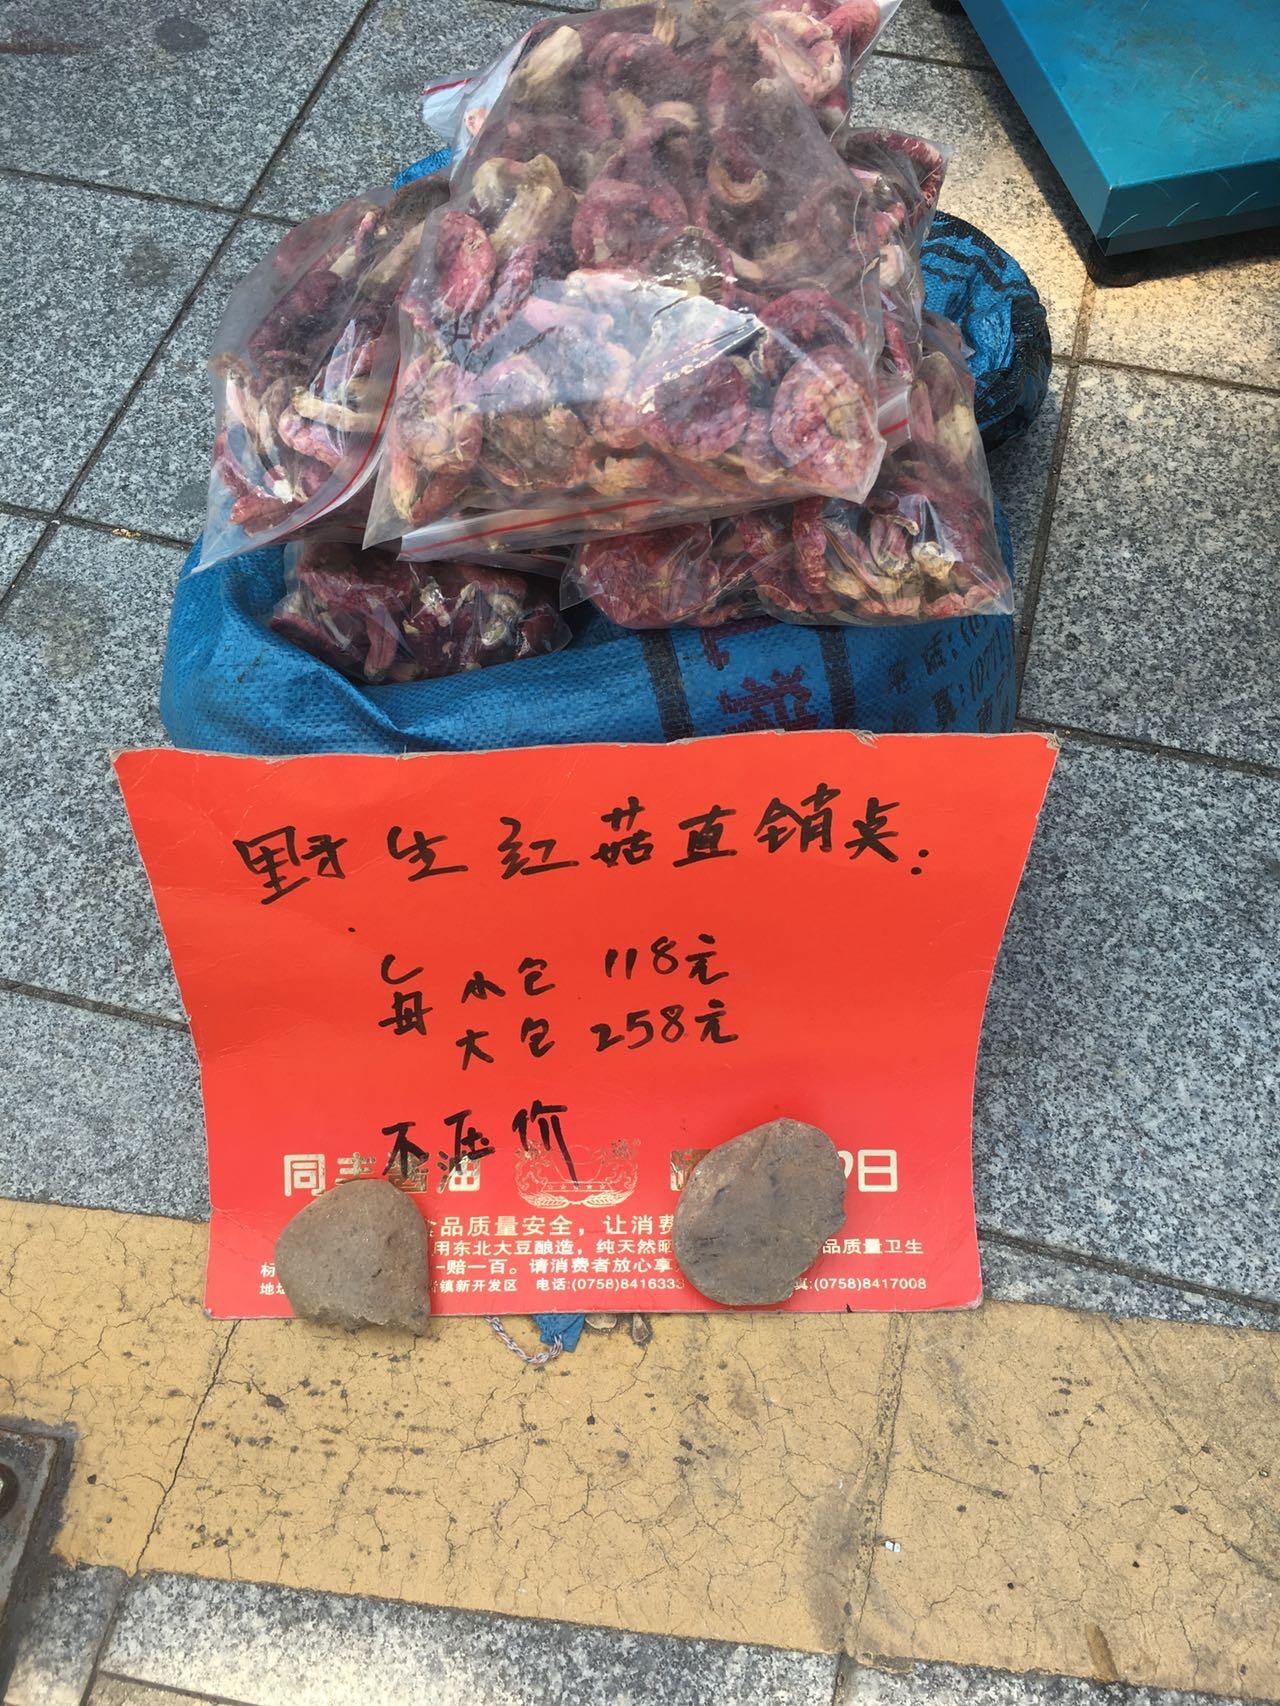 野生红菇直销点:
每 小包 118元
大包 258元
不压价
同 油 日
品质量安全，让消费
用东北大豆酿造，纯天然晒 品质量卫生
标 一赔一百。请消费者放心享
地址 镇新开发区 电话:(0758)8416333 真:(0758)8417008